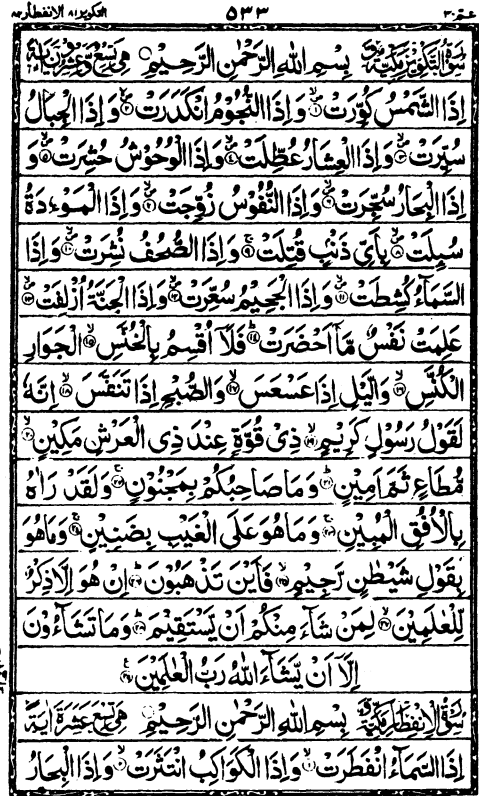 عم ٣٠ ٥٣٣ التكوير ٨١ الانفطار ٨٢
سورة التكوير مكية بِسْمِ اللهِ الرَّحْمٰنِ الرَّحِيْمِ هي تسع وعشرون اية
اِذَا الشَّمْسُ كُوِّرَتْ ۝١ وَاِذَا النُّجُوْمُ انْكَدَرَتْ ۝٢ وَاِذَا الْجِبَالُ
سُيِّرَتْ ۝٣ وَاِذَا الْعِشَارُ عُطِّلَتْ ۝٤ وَاِذَا الْوُحُوْشُ حُشِرَتْ ۝٥ وَ
اِذَا الْبِحَارُ سُجِّرَتْ ۝٦ وَاِذَا النُّفُوْسُ زُوِّجَتْ ۝٧ وَاِذَا الْمَوْءٗدَةُ
سُىِٕلَتْ ۝٨ بِاَيِّ ذَنْۢبٍ قُتِلَتْ ۝٩ وَاِذَا الصُّحُفُ نُشِرَتْ ۝١٠ وَاِذَا
السَّمَآءُ كُشِطَتْ ۝١١ وَاِذَا الْجَحِيْمُ سُعِّرَتْ ۝١٢ وَاِذَا الْجَنَّةُ اُزْلِفَتْ ۝١٣
عَلِمَتْ نَفْسٌ مَّآ اَحْضَرَتْ ۝١٤ فَلَآ اُقْسِمُ بِالْخُنَّسِ ۝١٥ الْجَوَارِ
الْكُنَّسِ ۝١٦ وَالَّيْلِ اِذَا عَسْعَسَ ۝١٧ وَالصُّبْحِ اِذَا تَنَفَّسَ ۝١٨ اِنَّهٗ
لَقَوْلُ رَسُوْلٍ كَرِيْمٍ ۝١٩ ذِيْ قُوَّةٍ عِنْدَ ذِي الْعَرْشِ مَكِيْنٍ ۝٢٠
مُّطَاعٍ ثَمَّ اَمِيْنٍ ۝٢١ وَمَا صَاحِبُكُمْ بِمَجْنُوْنٍ ۝٢٢ وَلَقَدْ رَاٰهُ
بِالْاُفُقِ الْمُبِيْنِ ۝٢٣ وَمَا هُوَ عَلَى الْغَيْبِ بِضَنِيْنٍ ۝٢٤ وَمَا هُوَ
بِقَوْلِ شَيْطٰنٍ رَّجِيْمٍ ۝٢٥ فَاَيْنَ تَذْهَبُوْنَ ۝٢٦ اِنْ هُوَ اِلَّا ذِكْرٌ
لِّلْعٰلَمِيْنَ ۝٢٧ لِمَنْ شَآءَ مِنْكُمْ اَنْ يَّسْتَقِيْمَ ۝٢٨ وَمَا تَشَآءُوْنَ
اِلَّآ اَنْ يَّشَآءَ اللهُ رَبُّ الْعٰلَمِيْنَ ۝٢٩
سورة الانفطار مكية بِسْمِ اللهِ الرَّحْمٰنِ الرَّحِيْمِ هي تسع عشرة اية
اِذَا السَّمَآءُ انْفَطَرَتْ ۝١ وَاِذَا الْكَوَاكِبُ انْتَثَرَتْ ۝٢ وَاِذَا الْبِحَارُ